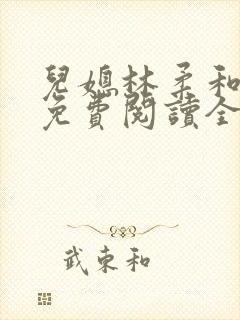 兒媳林柔和
免費閱讀全
武東和